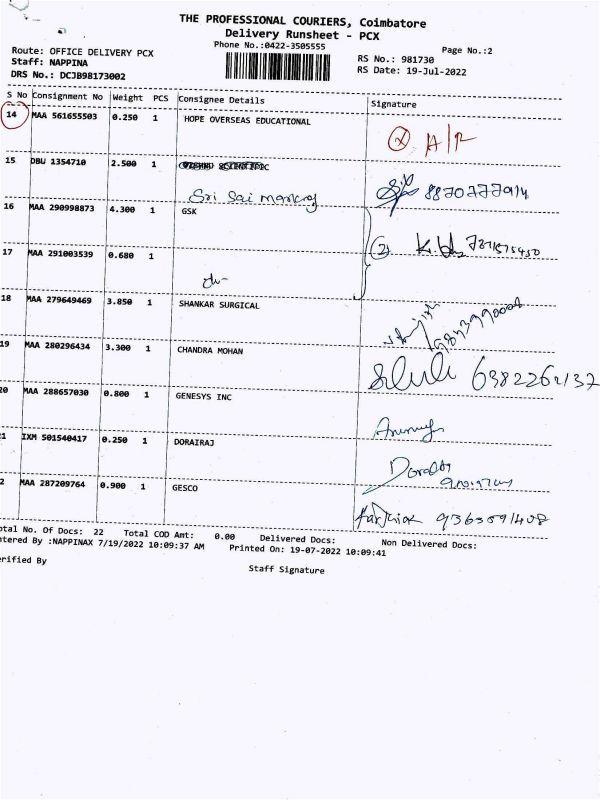 THE PROFESSIONAL COURIERS, Coimbatore
Delivery Runsheet - PCX
Phone No.:0422-3505555
Page No.:2
Route: OFFICE DELIVERY PCX
Staff: NAPPINA
DRS No.: DCJB98173002
RS No.: 981730
RS Date: 19-Jul-2022
S No Consignment No Weight PCS Consignee Details Signature
14 MAA 561655503 0.250 1 HOPE OVERSEAS EDUCATIONAL
15 DBU 1354710 2.500 1
Sri Sai 8870777914
16 MAA 290998873 4.300 1 GSK
17 MAA 291003539 0.680 1
18 MAA 279649469 3.850 1 SHANKAR SURGICAL
19 MAA 280296434 3.300 1 CHANDRA MOHAN
6382262132
20 MAA 288657030 0.800 1 GENESYS INC
21 IXM 501540417 0.250 1 DORAIRAJ
22 MAA 287209764 0.900 1 GESCO
Total No. Of Docs: 22 Total COD Amt: 0.00 Delivered Docs: Non Delivered Docs:
Entered By :NAPPINAX 7/19/2022 10:09:37 AM Printed On: 19-07-2022 10:09:41
Verified By Staff Signature